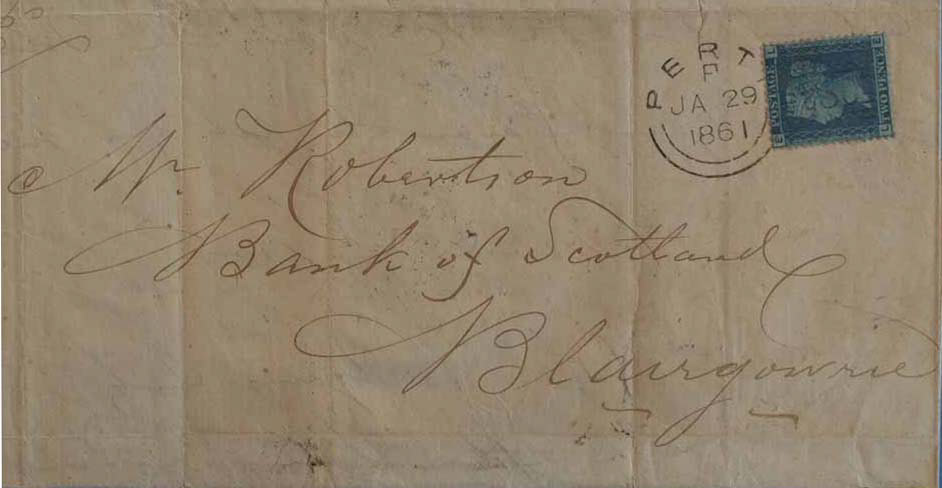 PERT
P
JA 29
1861
E L
POSTAGE
TWO PENCE
L E
Mr. Robertson
Bank of Scotland
Blairgowrie